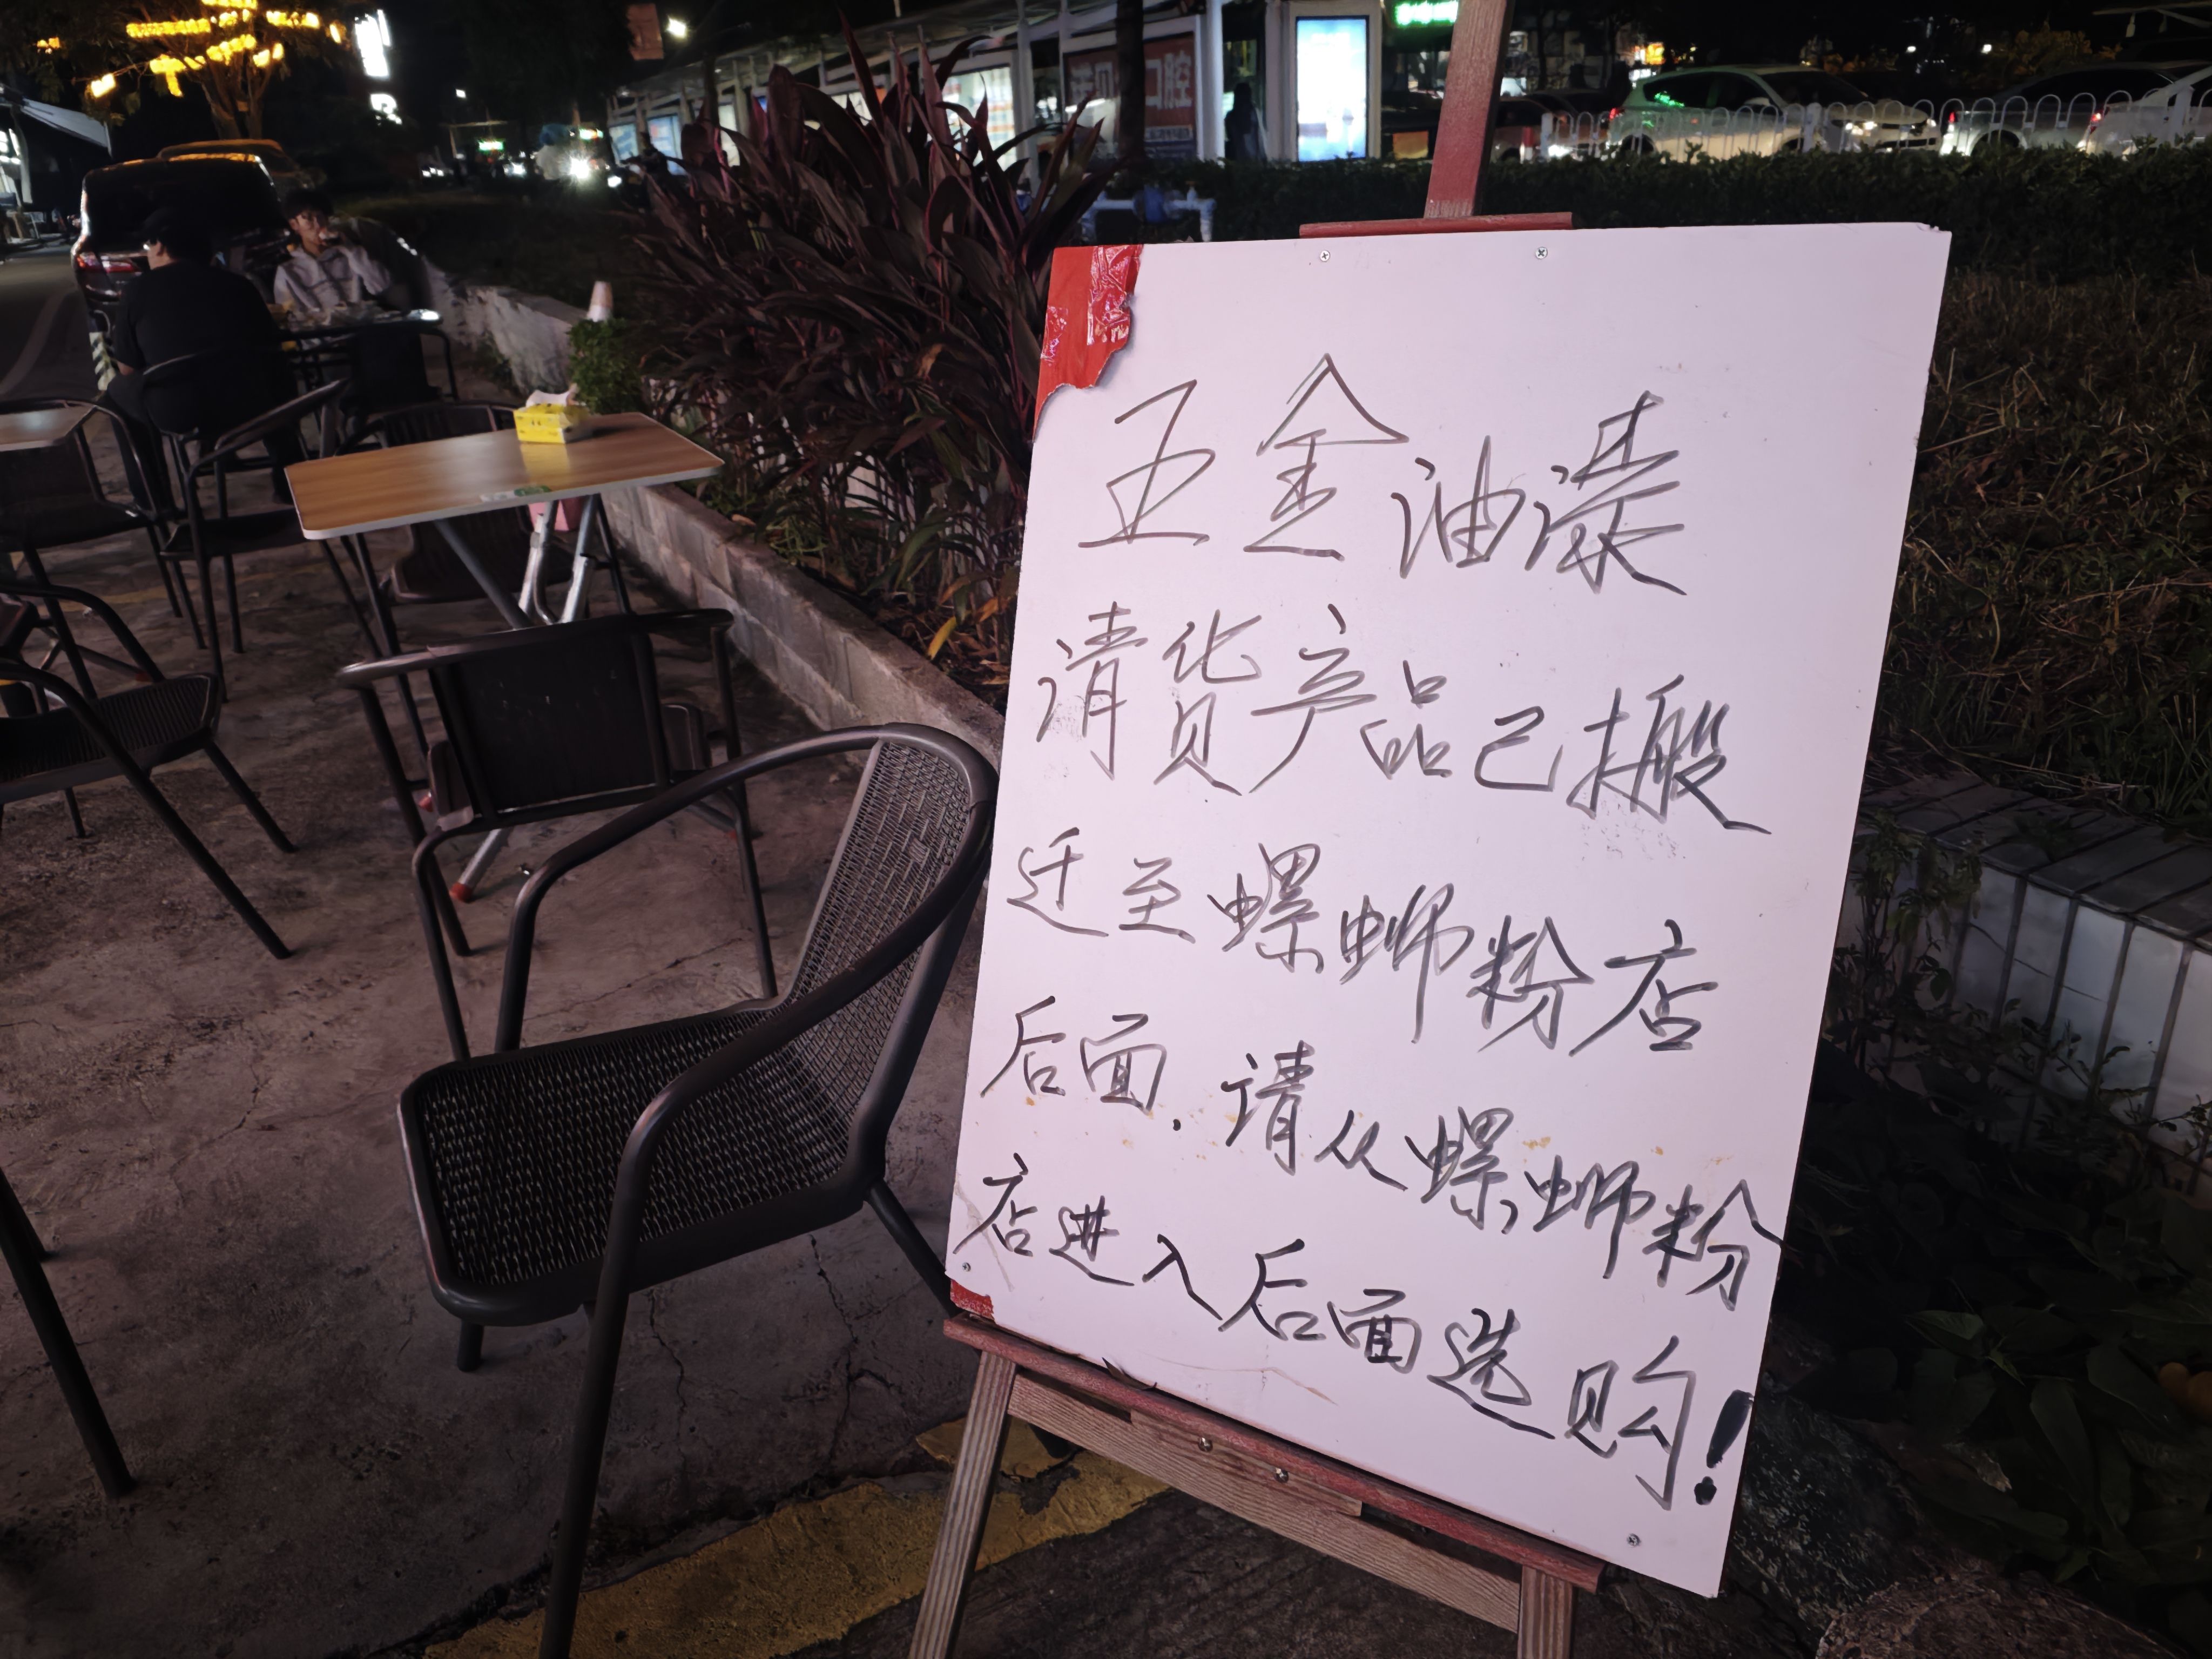 五金油漆
清货产品已搬
迁至螺蛳粉店
后面.请从螺蛳粉
店进入后面选购!
口腔